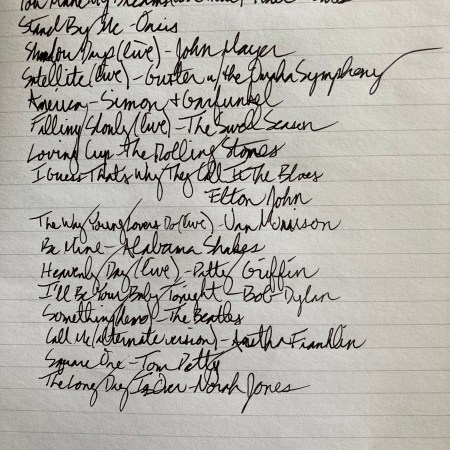 You Make My Dreams
Stand By Me - Oasis
Shadow Days (live) - John Mayer
Satellite (live) - Guster w/ the Symphony
America - Simon & Garfunkel
Falling Slowly (live) - The Swell Season
Loving Cup - The Rolling Stones
I Guess That's Why They Call It The Blues
Elton John
The Way Young Lovers Do (live) - Van Morrison
Be Mine - Alabama Shakes
Heavenly Day (live) - Patty Griffin
I'll Be Your Baby Tonight - Bob Dylan
Something (demo) - The Beatles
Call Me (alternate version) - Aretha Franklin
Square One - Tom Petty
The Long Day Is Over - Norah Jones